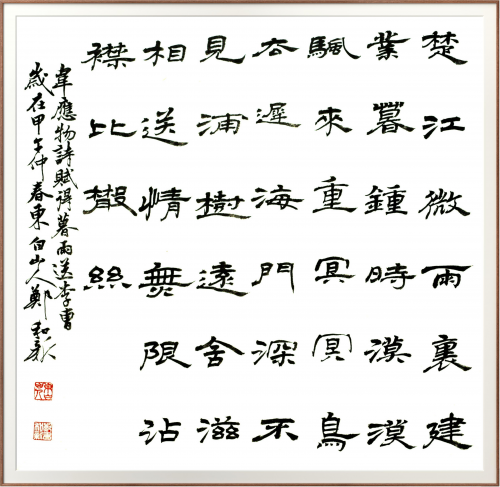 楚江微雨裏建
業暮鍾時漠漠
颿來重冥冥鳥
去遲海門深不
見浦樹遠含滋
相送情無限沾
襟比散絲
韋應物詩賦得暮雨送李曹
歲在甲午仲春東白山人鄭和新